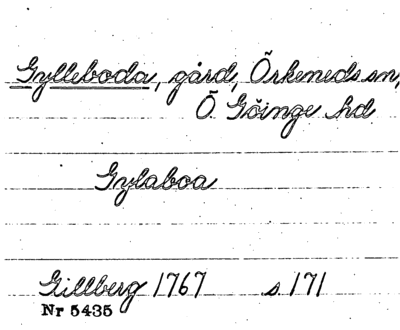 Gylleboda, gård, Örkeneds sn,
Ö. Göinge hd
Gylaboa
Gillberg 1767 s 171
Nr 5435